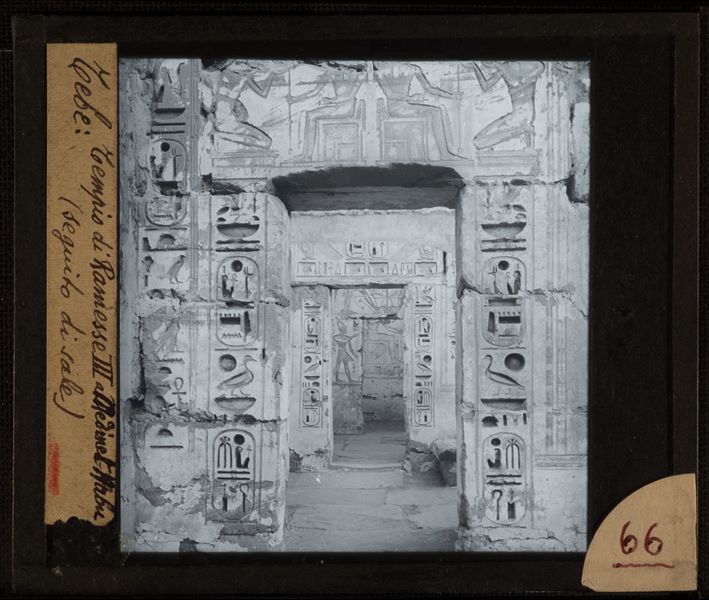 Tebe: Tempio di Ramesse III a Medinet-Habu
(seguito di sale)
66